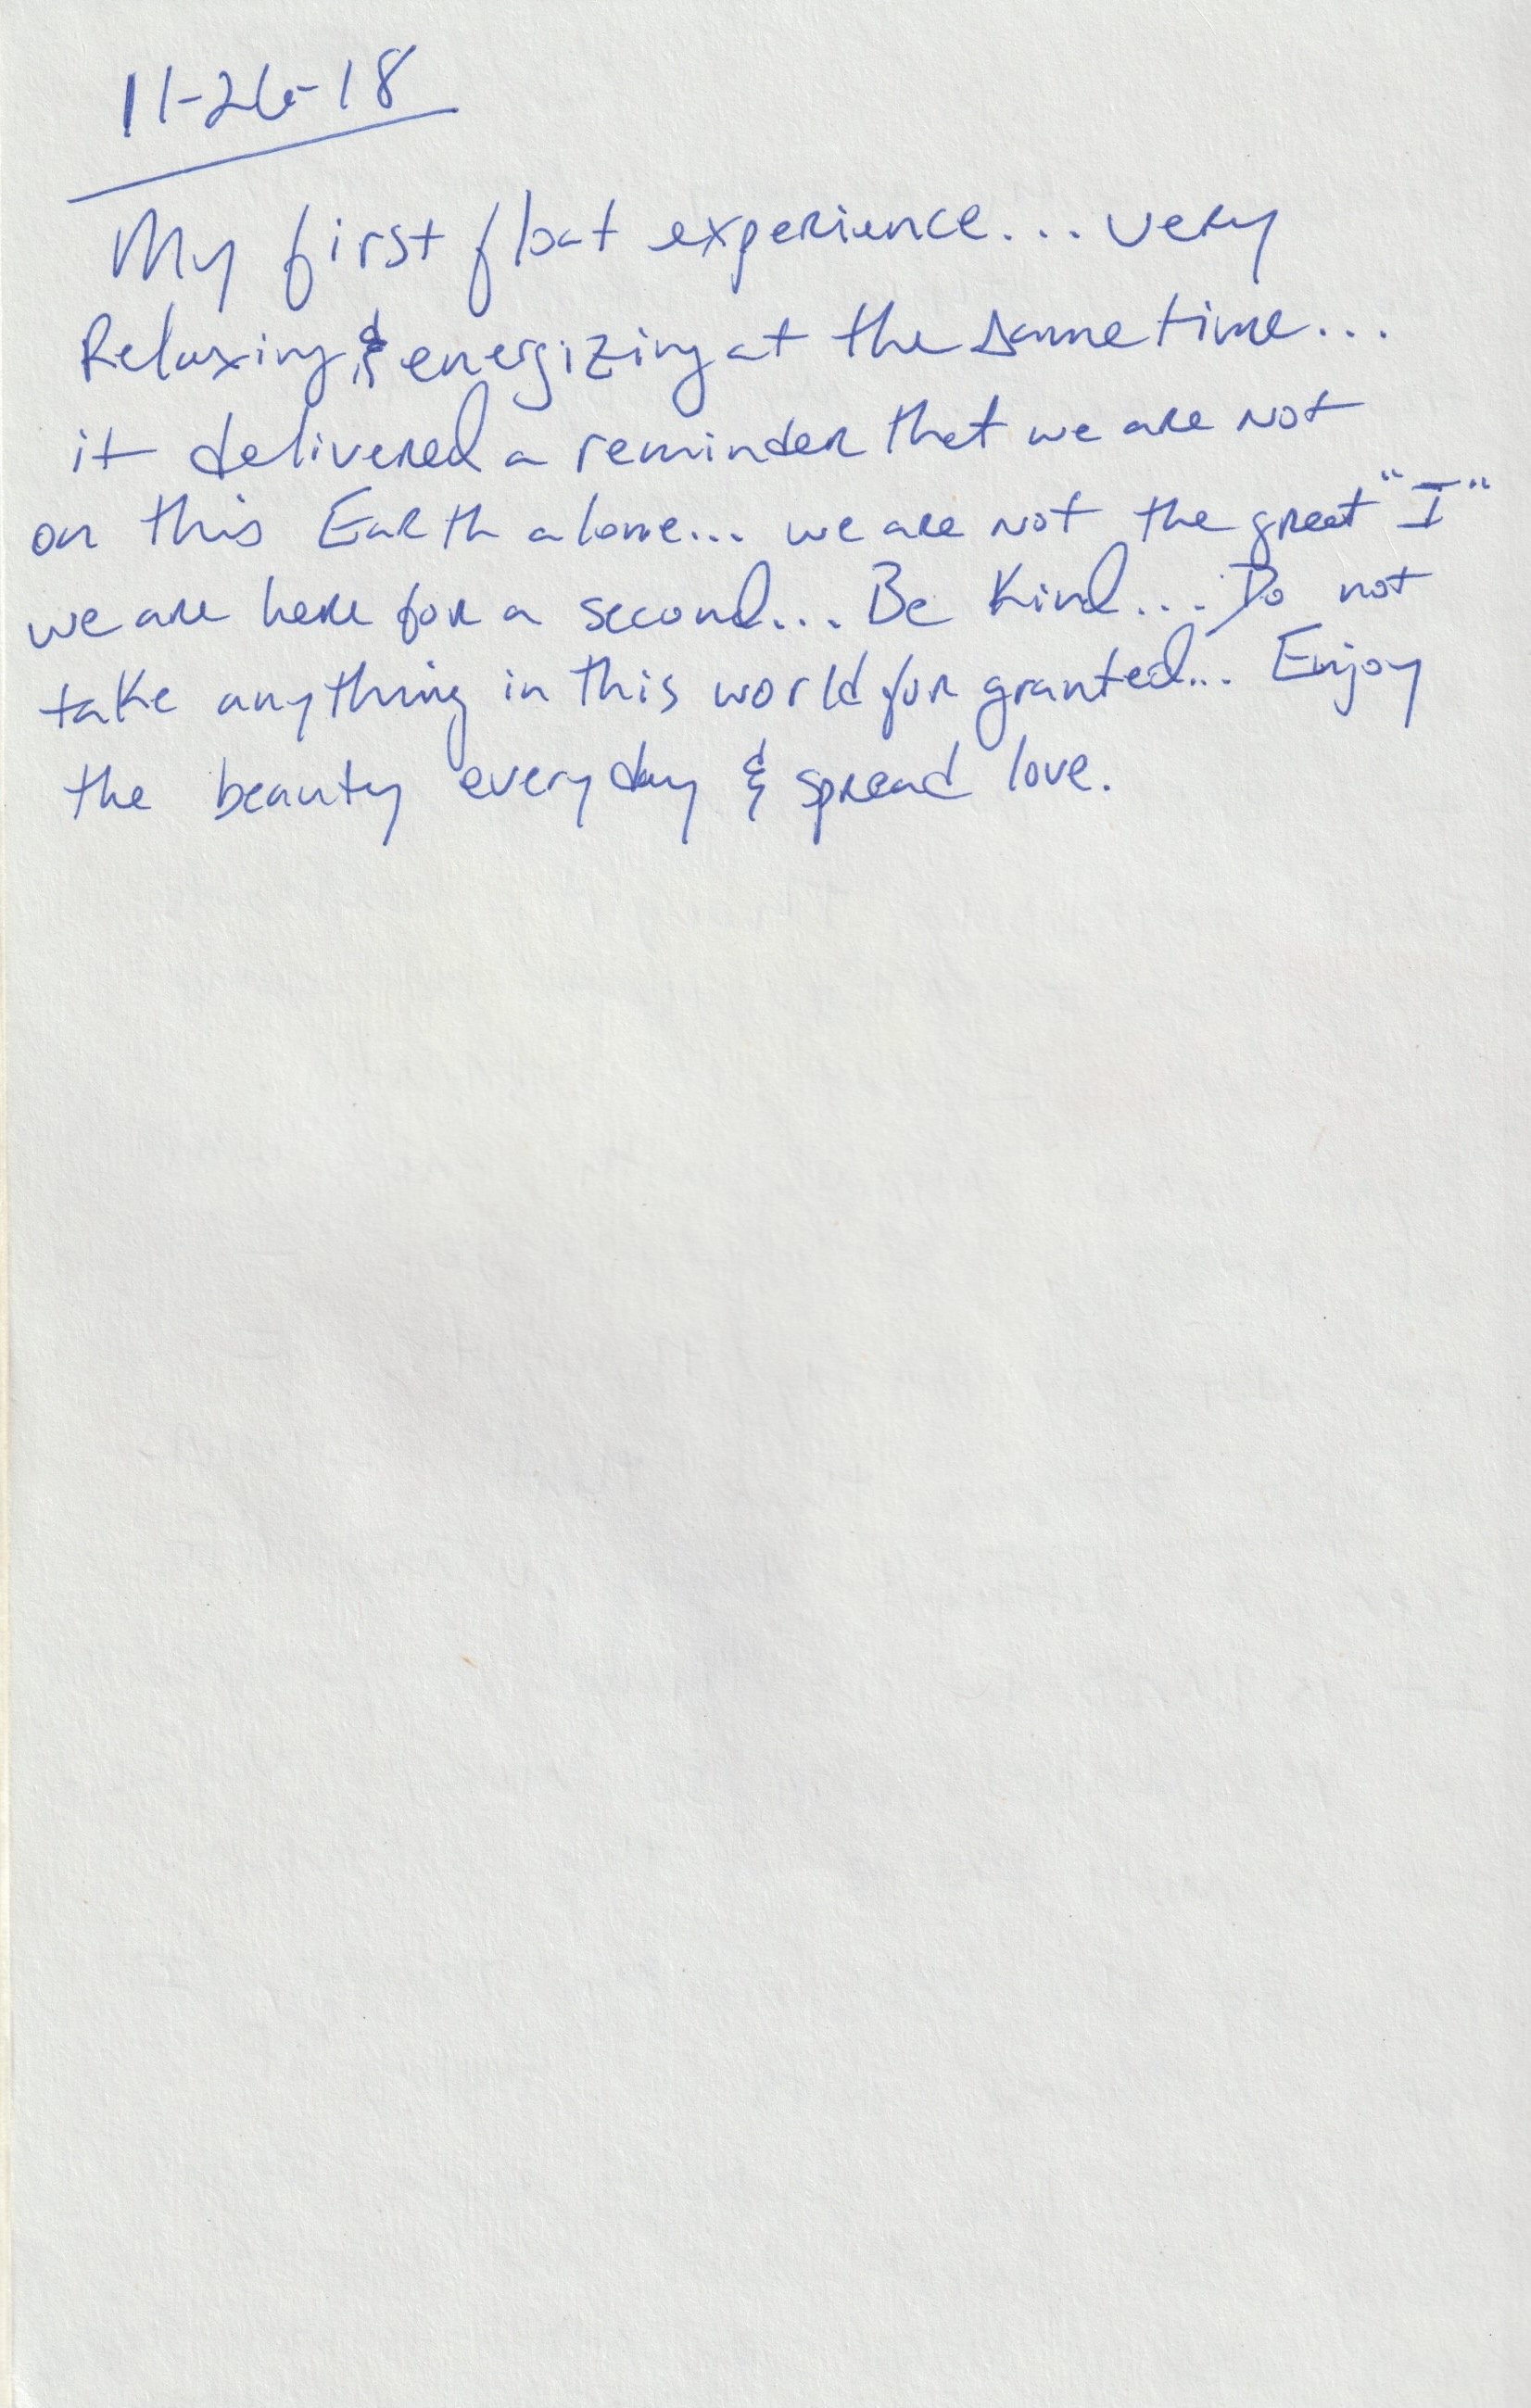 11-26-18
My first float experience... very
Relaxing & energizing at the same time...
it delivered a reminder that we are not
on this Earth alone... we are not the great "I"
we are here for a second... Be Kind... Do not
take anything in this world for granted... Enjoy
the beauty everyday & spread love.